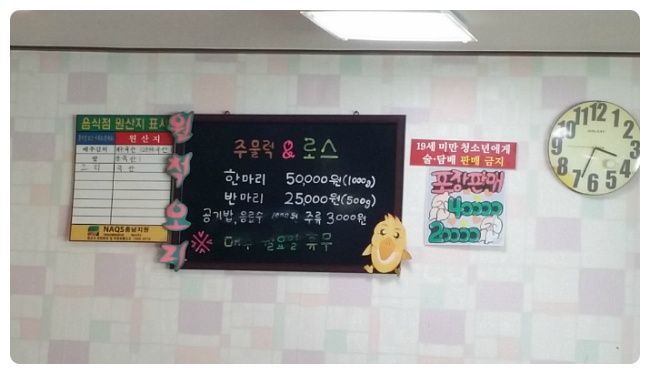 음식점 원산지 표시
원산지
배추김치
쌀
오리
NAQS충남지원
원칙오리
주물럭 & 로스
한마리 50,000원(1000g)
반마리 25,000원(500g)
공기밥, 음료수 1000원 주류 3000원
매주 월요일 휴무
19세 미만 청소년에게
술·담배 판매 금지
포장판매
40000
20000
12
1
2
3
4
5
6
7
8
9
10
11